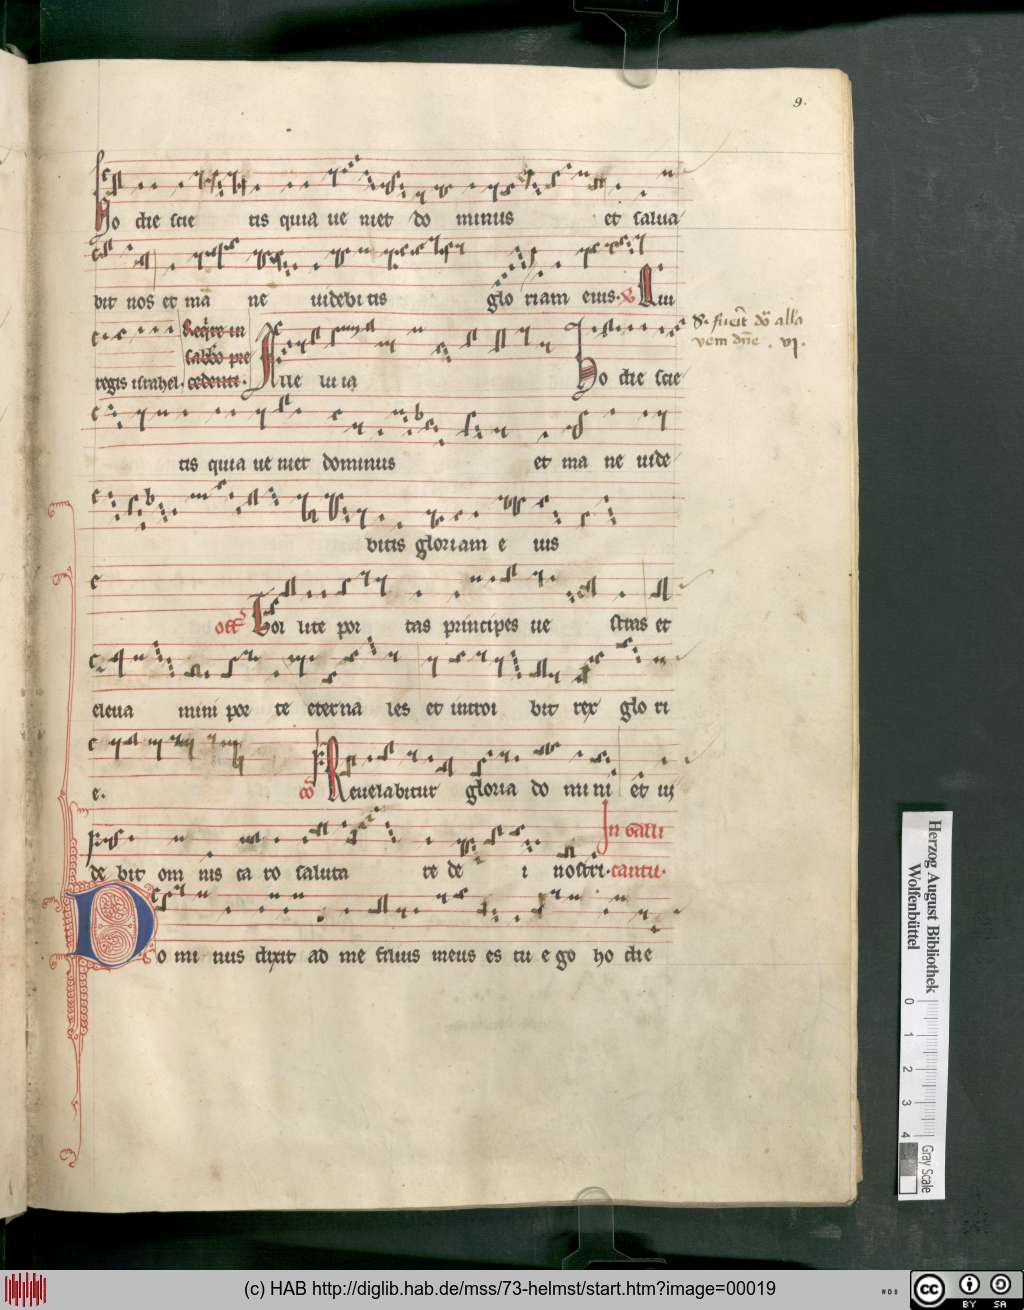 9.
Ho die scie tis quia ue niet do minus et salua
bit nos et ma ne uidebi tis glo riam eius. V Qui
S. fuerit dõ alla
vem dñe . vj.
regis israhel. Reqͥre in
sabbo pre
cedenti. Alle lu ia Ho die scie
tis quia ue niet dominus et ma ne uide
bitis gloriam e ius
off Tol lite por tas principes ue stras et
eleua mini por te eterna les et introi bit rex glo ri
e. cõ Reuelabitur gloria do mi ni et ui
In Galli
de bit om nis ca ro saluta re de i nostri. cantu.
Do mi nus dixit ad me filius meus es tu e go ho die
Herzog August Bibliothek
Wolfenbüttel
0 1 2 3 4
Gray Scale
(c) HAB http://diglib.hab.de/mss/73-helmst/start.htm?image=00019
WDB
cc BY SA